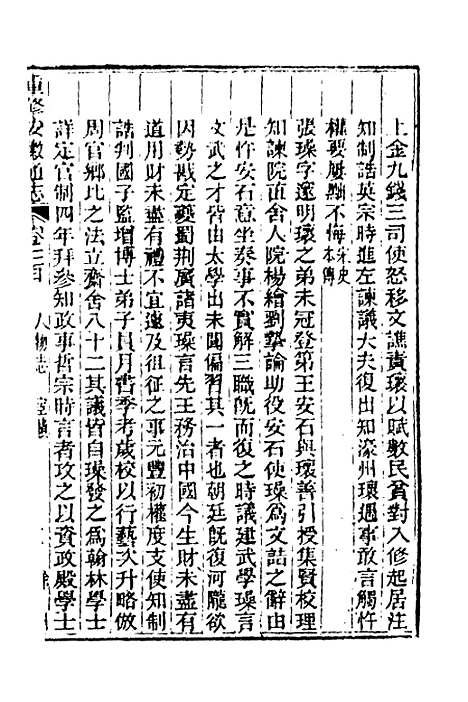 上金九錢三司使怒移文譙責瓌以賦數民貧對入修起居注
知制誥英宗時進左諫議大夫復出知濠州瓌遇事敢言觸忤
權要屢黜不悔宋史本傳
張璪字邃明瓌之弟未冠登第王安石與瓌善引授集賢校理
知諫院直舍人院楊繪劉摯論助役安石使璪爲文詰之辭由
是忤安石意坐奏事不實解三職旣而復之時議建武學璪言
文武之才皆由太學出未聞偏習其一者也朝廷旣復河隴欲
因勢戡定夔蜀荆廣諸夷璪言先王務治中國今生財未盡有
道用財未盡有禮不宜遽及徂征之事元豐初權度支使知制
誥判國子監增博士弟子員月書季考歲校以行藝次升略倣
周官鄉比之法立齋舍八十二其議皆自璪發之爲翰林學士
詳定官制四年拜參知政事哲宗時言者攻之以資政殿學士
重修安徽通志 卷二百 人物志 宦績